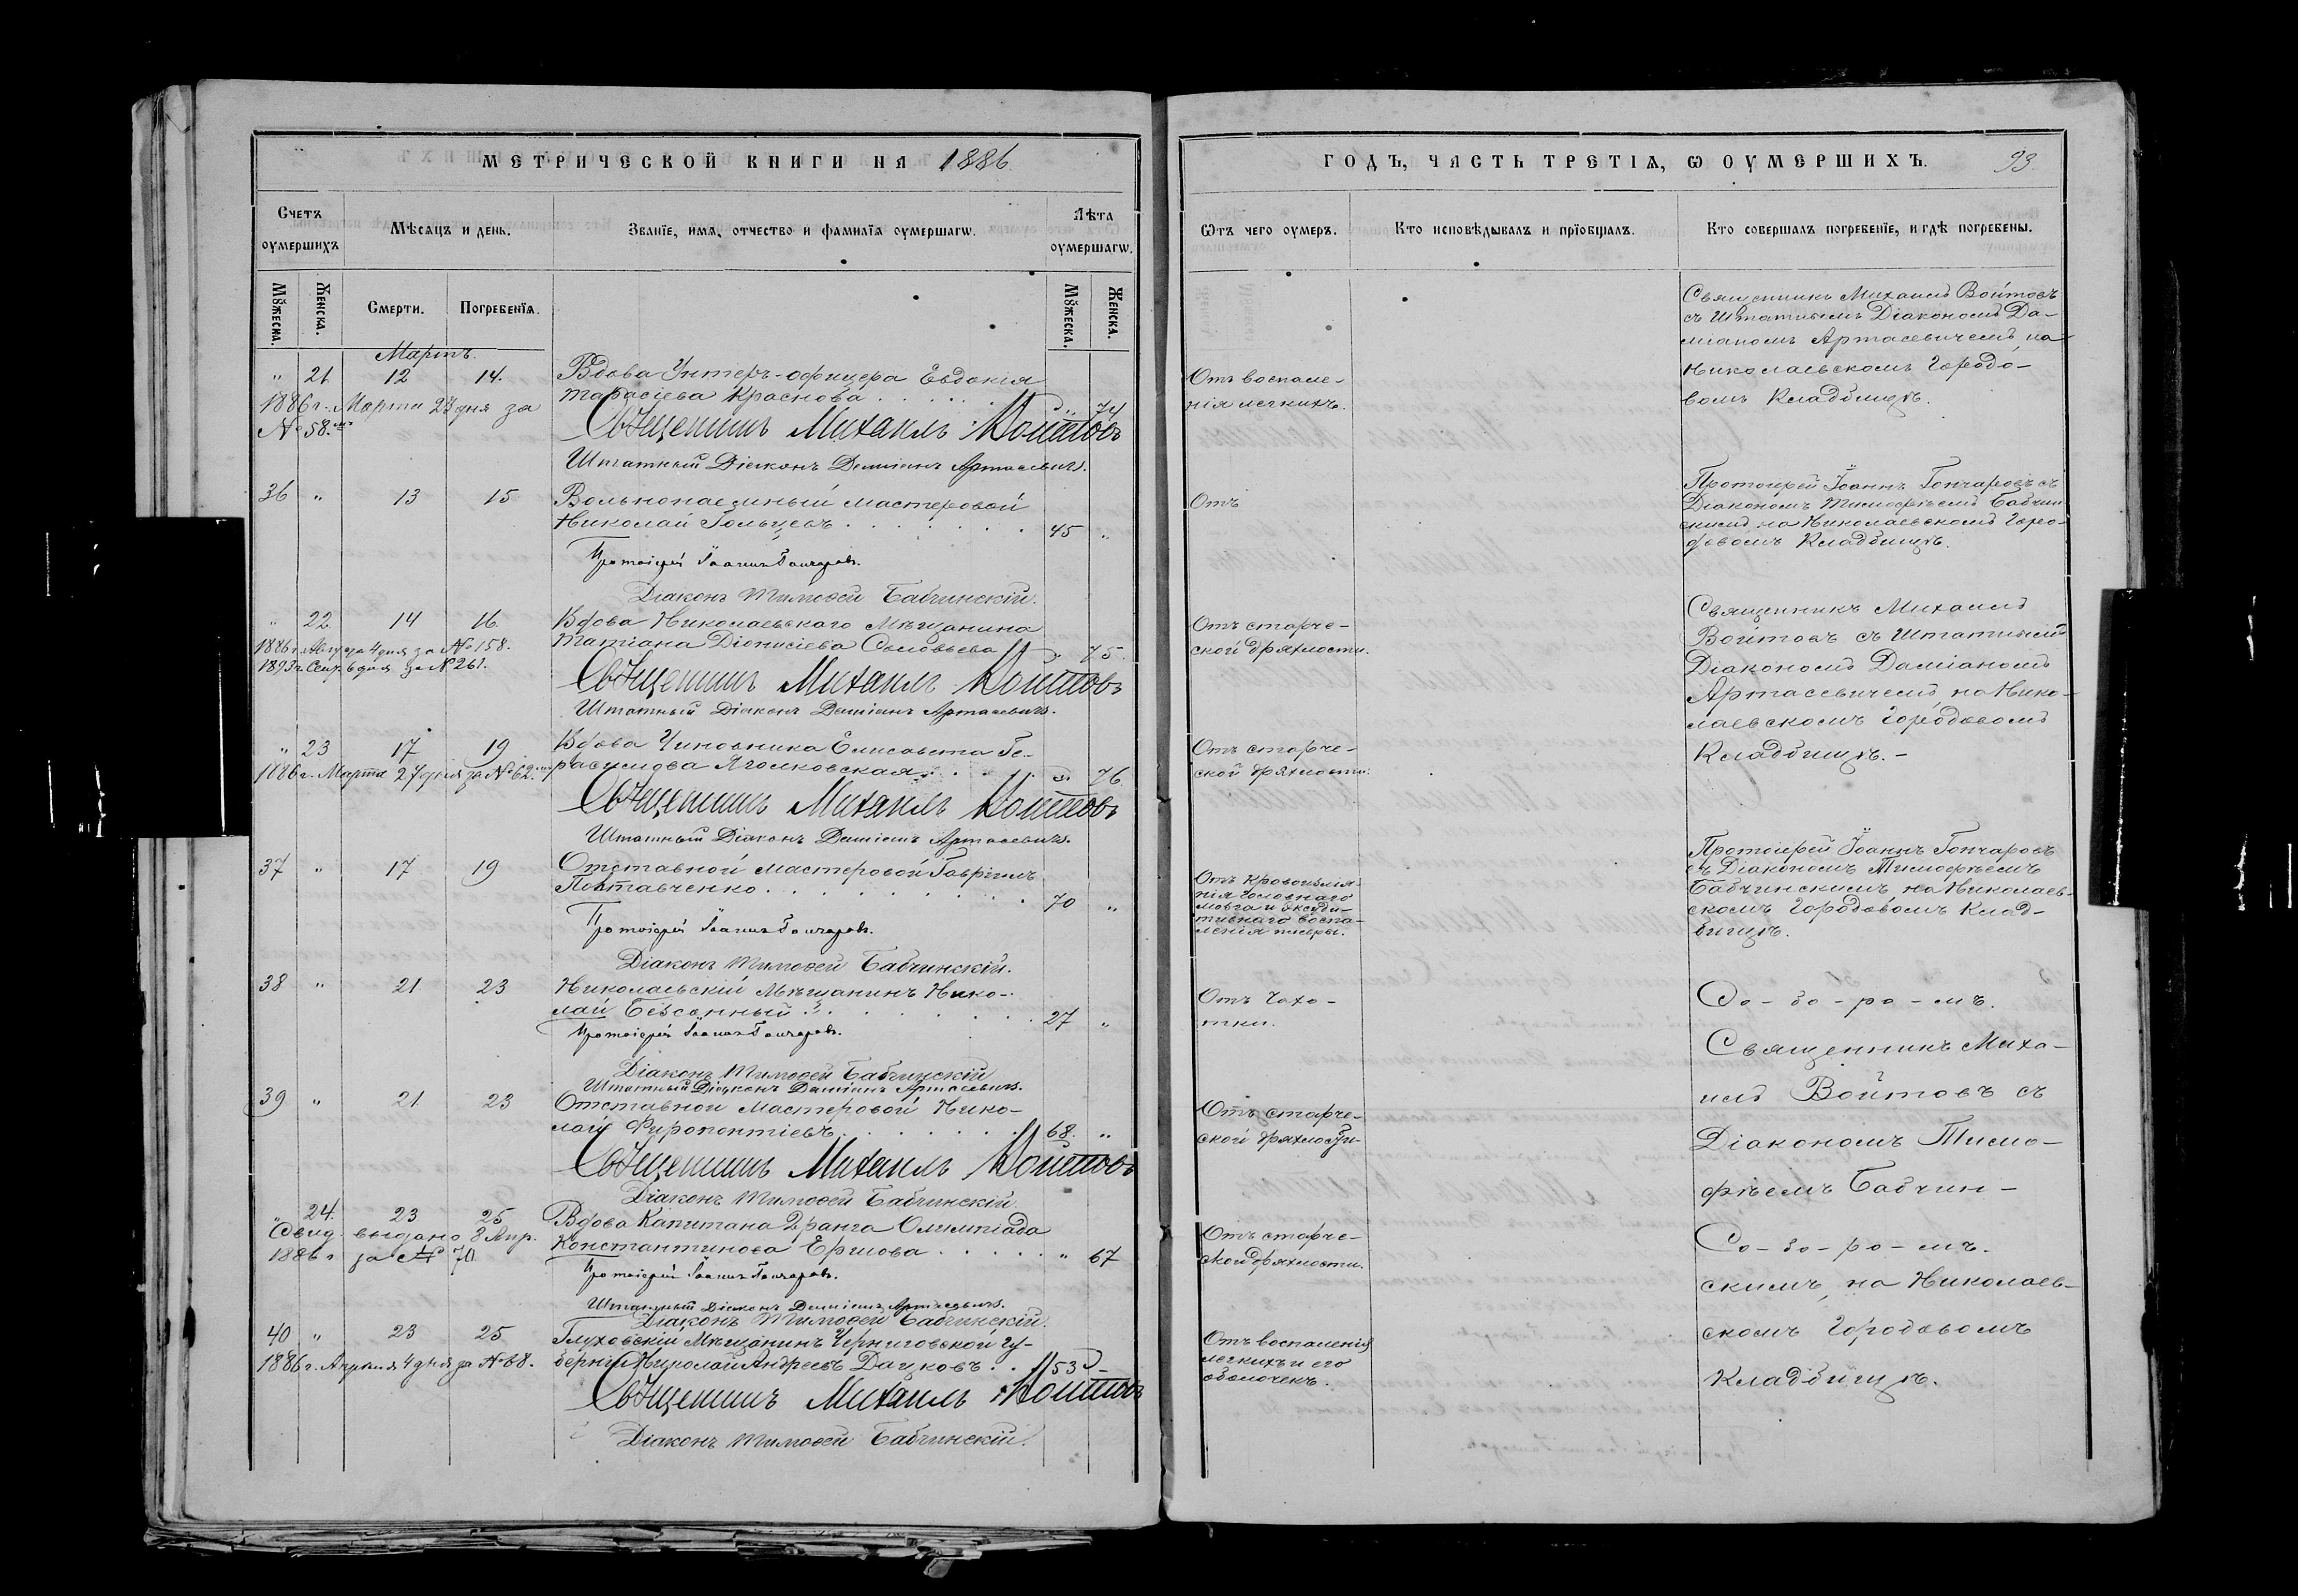 МЕТРИЧЕСКОЙ КНИГИ НА 1886.
Счетъ оумершихъ
Мѣсяцъ и день.
Званїе, имя, отчество и фамилїя оумершагѡ.
Лѣта оумершагѡ.
Мꙋжеска.
Женска.
Смерти.
Погребенїя.
Мꙋжеска.
Женска.
Мартъ.
" 21 12 14. Вдова Унтеръ-офицера Евдокія
Тарасіева Краснова . . . . . " 74
1886 г. Марта 23 дня за
№ 58.
Священникъ Михаилъ Войтовъ
Штатный Діаконъ Даміанъ Артасевичъ.
36 " 13 15 Вольнонаемный мастеровой
Николай Гольцевъ . . . . . . 45 "
Протоіерей Іоаннъ Гончаровъ.
Діаконъ Тимоѳей Бабчинскій.
" 22 14 16 Вдова Николаевскаго Мѣщанина
Татіана Діонисіева Соловьева " 75
1886 г. 4 дня за № 158.
1893 г. Сент. 6 дня за № 261.
Священникъ Михаилъ Войтовъ
Штатный Діаконъ Даміанъ Артасевичъ.
" 23 17 19 Вдова Чиновника Елисавета Ге-
расимова Яголковская . . . . " 76
1886 г. Марта 27 дня за № 62.
Священникъ Михаилъ Войтовъ
Штатный Діаконъ Даміанъ Артасевичъ.
37 " 17 19 Отставной мастеровой Гавріилъ
Полтавченко . . . . . . . 70 "
Протоіерей Іоаннъ Гончаровъ.
Діаконъ Тимоѳей Бабчинскій.
38 " 21 23 Николаевскій Мѣщанинъ Нико-
лай Безсонный . . . . . . 27 "
Протоіерей Іоаннъ Гончаровъ.
Діаконъ Тимоѳей Бабчинскій
Штатный Діаконъ Даміанъ Артасевичъ.
39 " 21 23 Отставной Мастеровой Нико-
лай Фиропонтіевъ . . . . . 68. "
Священникъ Михаилъ Войтовъ
Діаконъ Тимоѳей Бабчинскій
" 24. 23 25 Вдова Капитана 2 ранга Олимпіада
Константинова Ершова . . . . " 67
Свид. выдано 3 Апр.
1886 г за № 70
Протоіерей Іоаннъ Гончаровъ.
Штатный Діаконъ Даміанъ Артасевичъ.
Діаконъ Тимоѳей Бабчинскій.
40 " 23 25 Глуховскій Мѣщанинъ Черниговской Гу-
берніи Николай Андреевъ Дацковъ . . 53 –
1886 г. Апрѣля 4 дня за № 68.
Священникъ Михаилъ Войтовъ
Діаконъ Тимоѳей Бабчинскій.
ГОДЪ, ЧАСТЬ ТРЕТІЯ, Ѡ ОУМЕРШИХЪ. 93
Ѿтъ чего оумеръ.
Кто исповѣдывалъ и прїобщалъ.
Кто совершалъ погребенїе, и гдѣ погребены.
Священникъ Михаилъ Войтовъ
съ Штатнымъ Діакономъ Да-
міаномъ Артасевичемъ, на
Николаевскомъ Городо-
вомъ Кладбищѣ.
Отъ воспале-
нія легкихъ.
Протоіерей Іоаннъ Гончаровъ съ
Діакономъ Тимофѣемъ Бабчин-
скимъ, на Николаевскомъ Горо-
довомъ Кладбищѣ.
Отъ
Священникъ Михаилъ
Войтовъ съ Штатнымъ
Діакономъ Даміаномъ
Артасевичемъ, на Нико-
лаевскомъ Городовомъ
Кладбищѣ. –
Отъ старче-
ской дряхлости.
Отъ старче-
ской дряхлости.
Протоіерей Іоаннъ Гончаровъ
съ Діакономъ Тимофѣемъ
Бабчинскимъ, на Николаев-
скомъ Городовомъ Клад-
бищѣ.
Отъ кровоизлія-
нія головнаго
мозга и эксуда-
тивнаго воспа-
ленія плевры.
Отъ чахо-
тки.
Со - бо - ро - мъ.
Священникъ Миха-
илъ Войтовъ съ
Діакономъ Тимо-
фѣемъ Бабчин-
Отъ старче-
ской дряхлости-
Со - бо - ро - мъ.
скимъ, на Николаев-
скомъ Городовомъ
Кладбищѣ.
Отъ старче-
ской дряхлости.
Отъ воспаленія
легкихъ и его
оболочекъ.